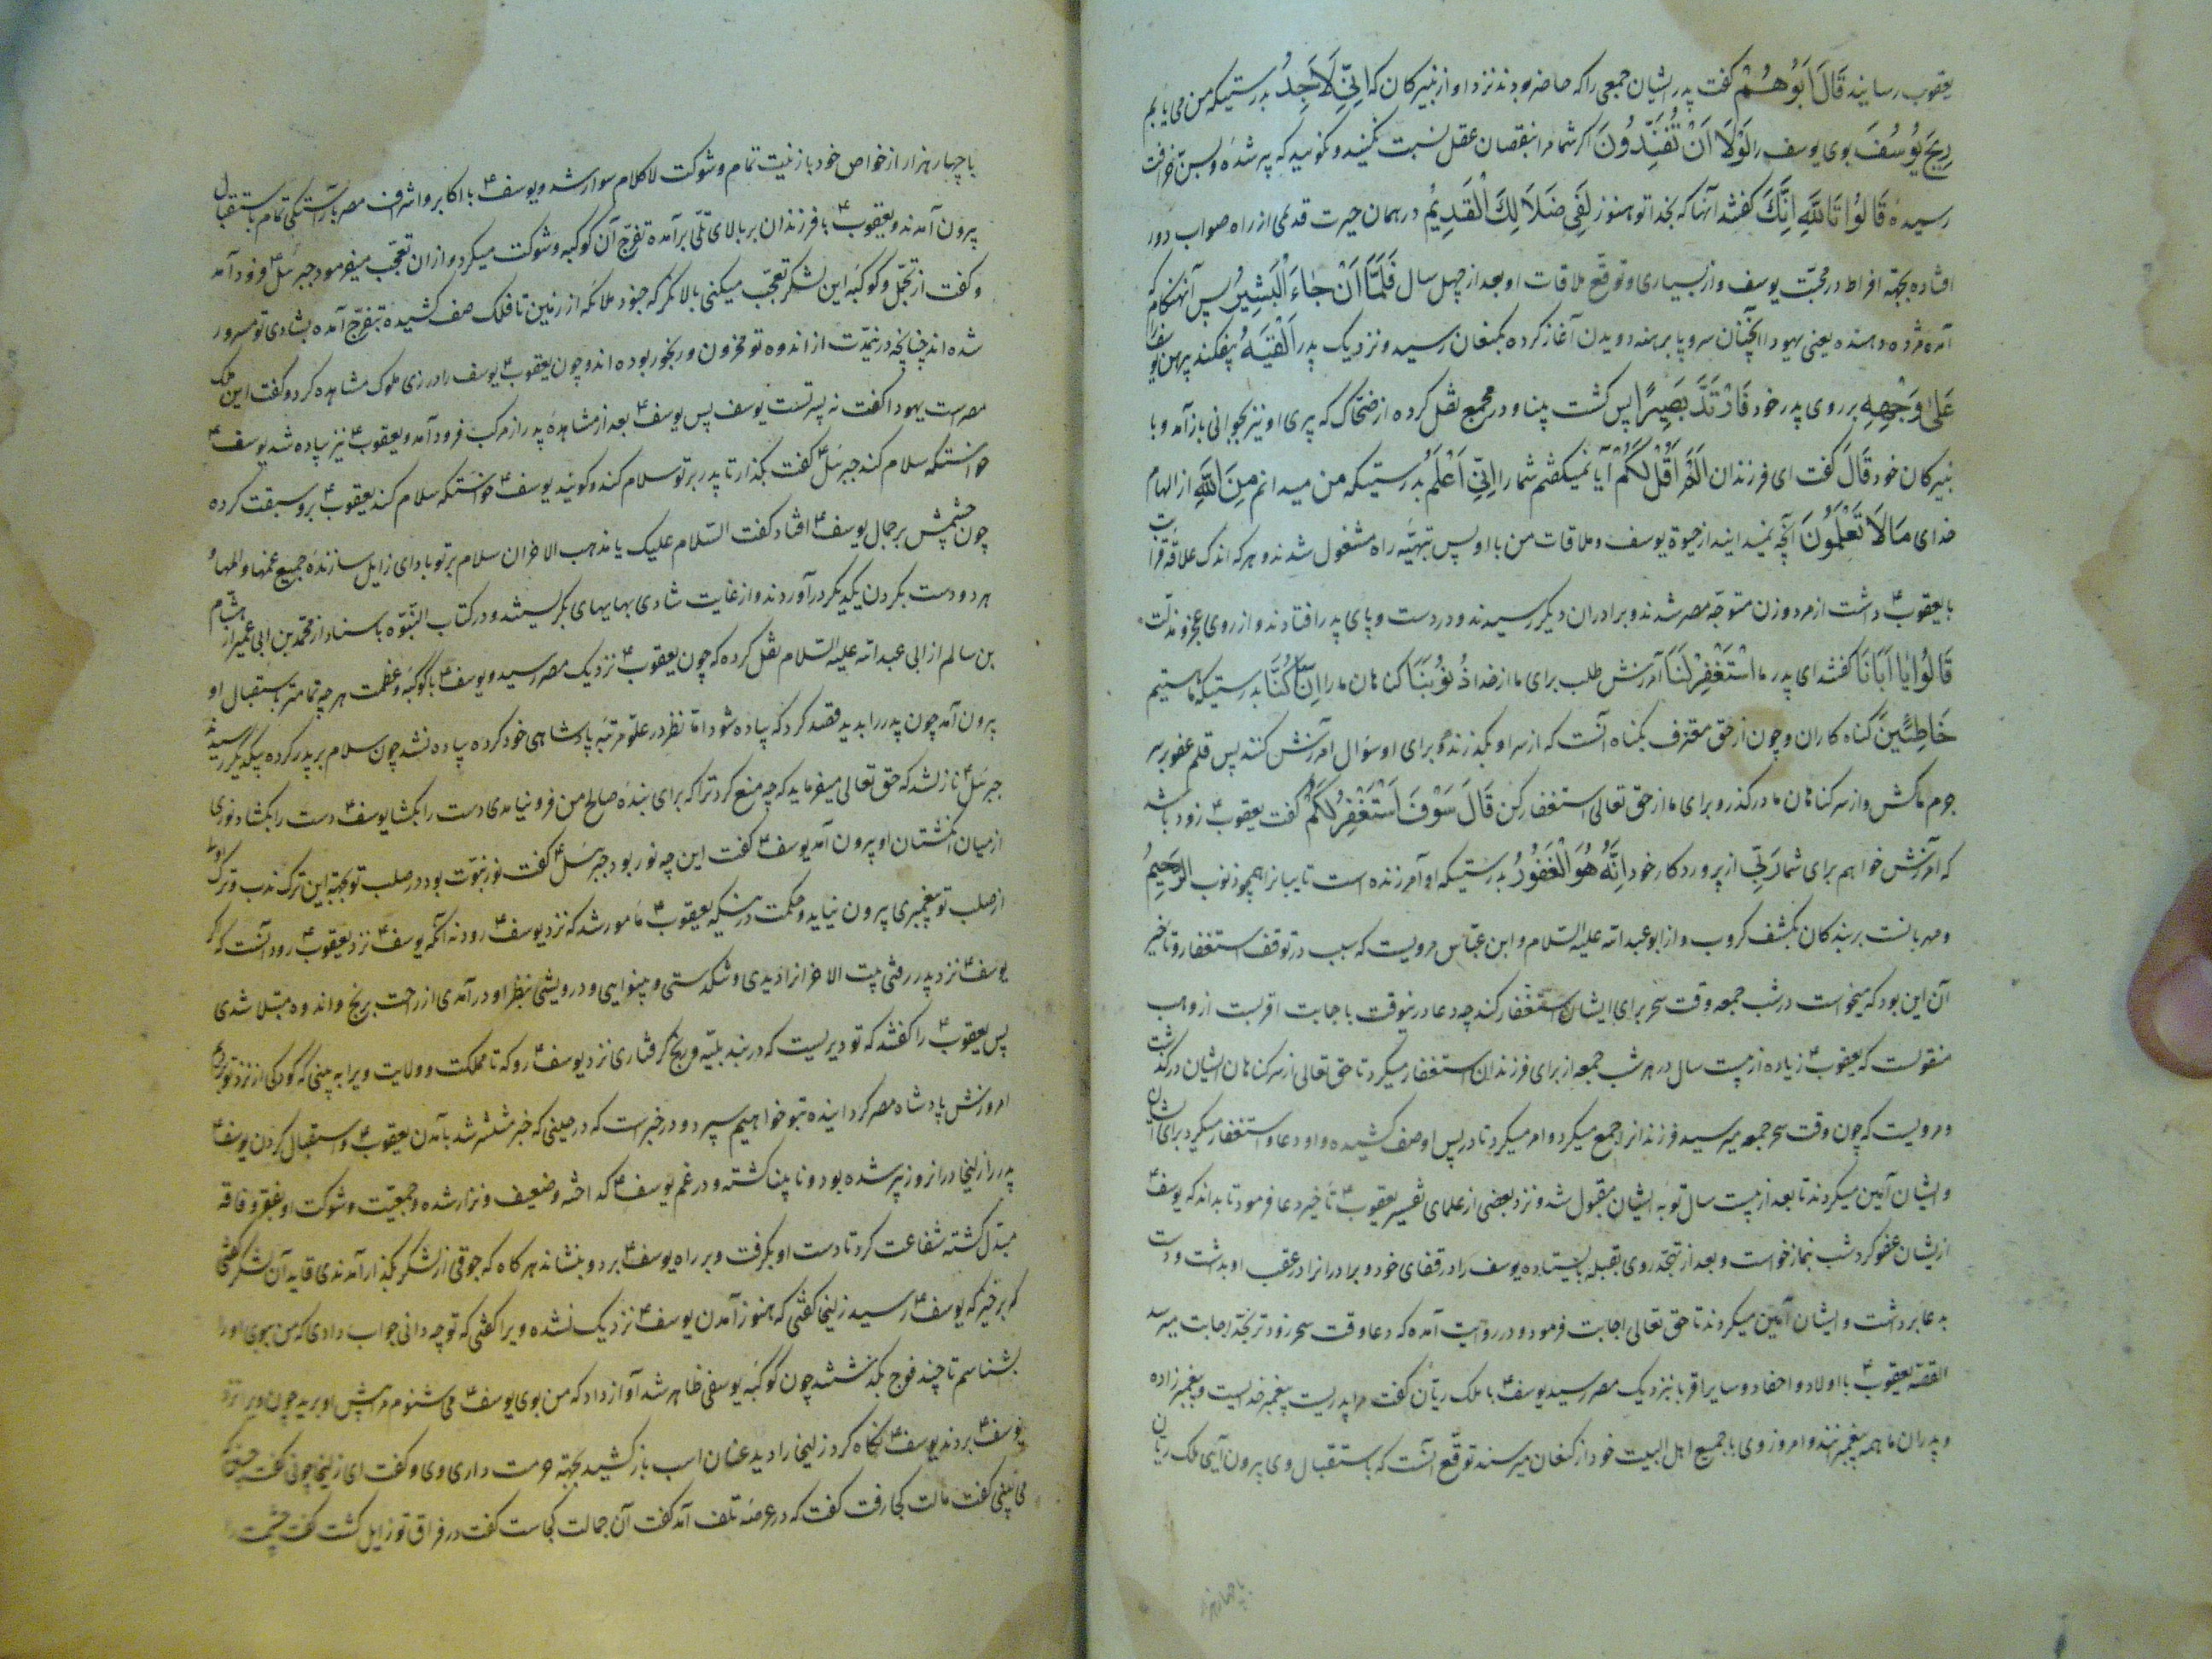 یعقوب رسانید قَالَ اَبُوهُمْ گفت پدر ایشان جمعی را که حاضر بودند نزد او از نبیرگان که اِنّی لَاَجِدُ بدرستیکه من می یابم
رِیحَ یُوسُفَ بوی یوسف را لَوْلَا اَنْ تُفَنِّدُونَ اگر شما مرا بنقصان عقل نسبت نکنید و نگوئید که پیر شدهٔ و بسن خرافت
رسیدهٔ قَالُوا تَاللهِ اِنَّکَ گفتند آنها که بخدا تو هنوز لَفِی ضَلَالِکَ الْقَدِیمِ در همان حیرت قدیمی از راه صواب دور
افتاده بجهة افراط در محبّت یوسف و از بسیاری و توقّع ملاقات او بعد از چهل سال فَلَمَّا اَنْ جَاءَ الْبَشِیرُ پس آنهنگام که
آمد مژده دهنده یعنی یهودا آنچنان سر و پا برهنه دویدن آغاز کرده بکنعان رسید و نزدیک پدر اَلْقیهُ بیفکند پیرهن یوسف
عَلی وَجْهِهِ بر روی پدر خود فَارْتَدَّ بَصِیرًا پس گشت بینا و در مجمع نقل کرده از ضحاک که پیری او نیز بجوانی بازآمد و با
نبیرگان خود قَالَ گفت ای فرزندان اَلَمْ اَقُلْ لَکُمْ آیا نمیگفتم شما را اِنّی اَعْلَمُ بدرستیکه من میدانم مِنَ اللهِ از الهام
خدای مَالَا تَعْلَمُونَ آنچه نمیدانید از حیوة یوسف و ملاقات من با او پس بتهیّهٔ راه مشغول شدند و هر که اندک علاقه قرابت
با یعقوب ع داشت از مرد و زن متوجّه مصر شدند و برادران دیگر رسیدند و در دست و پای پدر افتادند و از روی عجز و مذلّت
قَالُوا یَا اَبَانَا گفتند ای پدر ما اسْتَغْفِرْ لَنَا آمرزش طلب برای ما از خدا ذُنُوبَنَا گناهان ما را اِنَّا کُنَّا بدرستیکه ما هستیم
خَاطِئِینَ گناه کاران و چون از حق معترف بگناه آنست که از سر او بگذرند و برای او سؤال آمرزش کنند پس قلم عفو بر سر
جرم ما کش و از سر گناهان ما درگذر و برای ما از حق تعالی استغفار کن قَالَ سَوْفَ اَسْتَغْفِرُ لَکُمْ گفت یعقوب ع زود باشد
که آمرزش خواهم برای شما رَبِّی از پروردگار خود اِنَّهُ هُوَ الْغَفُورُ بدرستیکه او آمرزنده است تایبانرا بمحو ذنوب الرَّحِیمُ
و مهربانست بر بندگان بکشف کروب و از ابو عبدالله علیه السّلام و ابن عبّاس مرویست که سبب در توقف استغفار و تاخیر
آن این بود که میخواست در شب جمعه وقت سحر برای ایشان استغفار کند چه دعا در نوقت باجابت اقربست از وهب
منقولست که یعقوب ع زیاده از بیست سال در هر شب جمعه از برای فرزندان استغفار میکرد تا حق تعالی از سر گناهان ایشان درگذشت
و مرویست که چون وقت سحر جمعه میرسید فرزندانرا جمع میکرد و امر میکرد تا در پس او صف کشیده و او دعا و استغفار میکرد برای ایشان
و ایشان آمین میکردند تا بعد از بیست سال توبه ایشان مقبول شد و نزد بعضی از علمای تفسیر یعقوب ع تأخیر دعا فرمود تا بداند که یوسف ع
ازیشان عفو کرد شب بنماز خواست و بعد از تهجّد روی بقبله بایستاده یوسف را در قفای خود و برادرانرا در عقب او بداشت و دست
بدعا برداشت و ایشان آمین میکردند تا حق تعالی اجابت فرمود و در روایت آمده که دعا وقت سحر زودتر بحدّ اجابت میرسد
القصّه یعقوب ع با اولاد و احفاد و سایر اقربا بنزدیک مصر رسید یوسف ع با ملک ریّان گفت مرا پدریست پیغمبر خداست و پیغمبر زاده
و پدران ما همه پیغمبرند و امروز وی با جمیع اهل البیت خود از کنعان میرسند توقّع آنست که باستقبال وی بیرون آیی ملک ریّان
با چهار هزار
با چهار هزار از خواص خود با زینت تمام و شوکت لاکلام سوار شد و یوسف ع با اکابر و اشراف مصر بآراستگی تمام باستقبال
بیرون آمدند و یعقوب ع با فرزندان بر بالای تلّی برآمده تفرّج آن کوکبه و شوکت میکرد و از ان تعجّب میفرمود جبرئیل ع فرود آمد
و گفت از تجمّل و کوکبهٔ این لشکر تعجّب میکنی بالا نگر که جنود ملائکه از زمین تا فلک صف کشیده بتفرّج آمده بشادی تو مسرور
شده اند چنانچه درینمدّت از اندوه تو محزون و رنجور بوده اند و چون یعقوب ع یوسف را در زی ملوک مشاهده کرد و گفت این ملک
مصر است یهودا گفت نه پسر تست یوسف پس یوسف ع بعد از مشاهدهٔ پدر از مرکب فرود آمد و یعقوب ع نیز پیاده شد یوسف ع
خواستکه سلام کند جبرئیل ع گفت بگذار تا پدر بر تو سلام کند و گویند یوسف ع خواستکه سلام کند یعقوب ع برو سبقت کرده
چون چشمش بر جمال یوسف ع افتاد گفت السّلام علیک یا مذهب الاحزان سلام بر تو باد ای زایل سازندهٔ جمیع غمها و المها و
هر دو دست بگردن یکدیگر درآوردند و از غایت شادی بهایهای بگریستند و در کتاب النّبوّه باسناد از محمّد بن ابی عمیر از هشام
بن سالم از ابی عبدالله علیه السّلام نقل کرده که چون یعقوب ع نزدیک مصر رسید و یوسف ع با کوکبه و عظمت هر چه تمامتر باستقبال او
بیرون آمد چون پدر را بدید قصد کرد که پیاده شود امّا نظر در علوّ مرتبهٔ پادشاهی خود کرده پیاده نشد چون سلام بر پدر کرده بیکدیگر رسیدند
جبرئیل ع نازلشد که حق تعالی میفرماید که چه منع کرد ترا که برای بندهٔ صالح من فرو نیامدی دست را بکشا یوسف ع دست را بکشاد نوری
از میان انگشتان او بیرون آمد یوسف ع گفت این چه نور بود جبرئیل ع گفت نور نبوّت بود در صلب تو بجهة این ترک ندب و ترک اولی
از صلب تو پیغمبری بیرون نیاید و حکمت درینکه یعقوب ع مأمور شد که نزد یوسف ع رود نه آنکه یوسف ع نزد یعقوب ع رود آنست که اگر
یوسف ع نزد پدر رفتی بیت الاحزان را دیدی و تنگدستی و بینوایی و درویشی بنظر او درآمدی از راحت برنج و اندوه مبتلا شدی
پس یعقوب ع را گفتند که تو دیریست که در بند بلیّه و رنج گرفتاری نزد یوسف ع رو که تا مملکت و ولایت ویرا به بینی که کودکی از نزد تو بردیم
امروزش پادشاه مصر گردانیده بتو خواهیم سپرد و در خبر است که در حینی که خبر منتشر شد بآمدن یعقوب ع و استقبال کردن یوسف ع
پدر را زلیخا در انروز پیر شده بود و نابینا گشته و در غم یوسف ع گداخته و ضعیف و نزار شده و جمعیّت و شوکت او بفقر و فاقه
مبدّل گشته شفاعت کرد تا دست او بگرفت و بر راه یوسف ع برد و بنشاند هر گاه که جوقی از لشکر بگذار آمدندی قاید آن لشکر گفتی
که برخیز که یوسف ع رسید زلیخا گفتی که هنوز آمدن یوسف ع نزدیک نشده ویرا گفتی که تو چه دانی جواب دادی که من ببوی او را
بشناسم تا چند فوج بگذشتند چون کوکبهٔ یوسفی ظاهر شد آواز داد که من بوی یوسف ع می شنوم مرا پیش او برید چون ویرا نزد
یوسف ع بردند یوسف ع نگاه کرد زلیخا را دید عنان اسب باز کشید بجهة حرمت داری وی و گفت ای زلیخا چونی گفت چنین که
می بینی گفت مالت کجا رفت گفت که در عرضهٔ تلف آمد گفت آن جمالت کجاست گفت در فراق تو زایل گشت گفت چشمت را